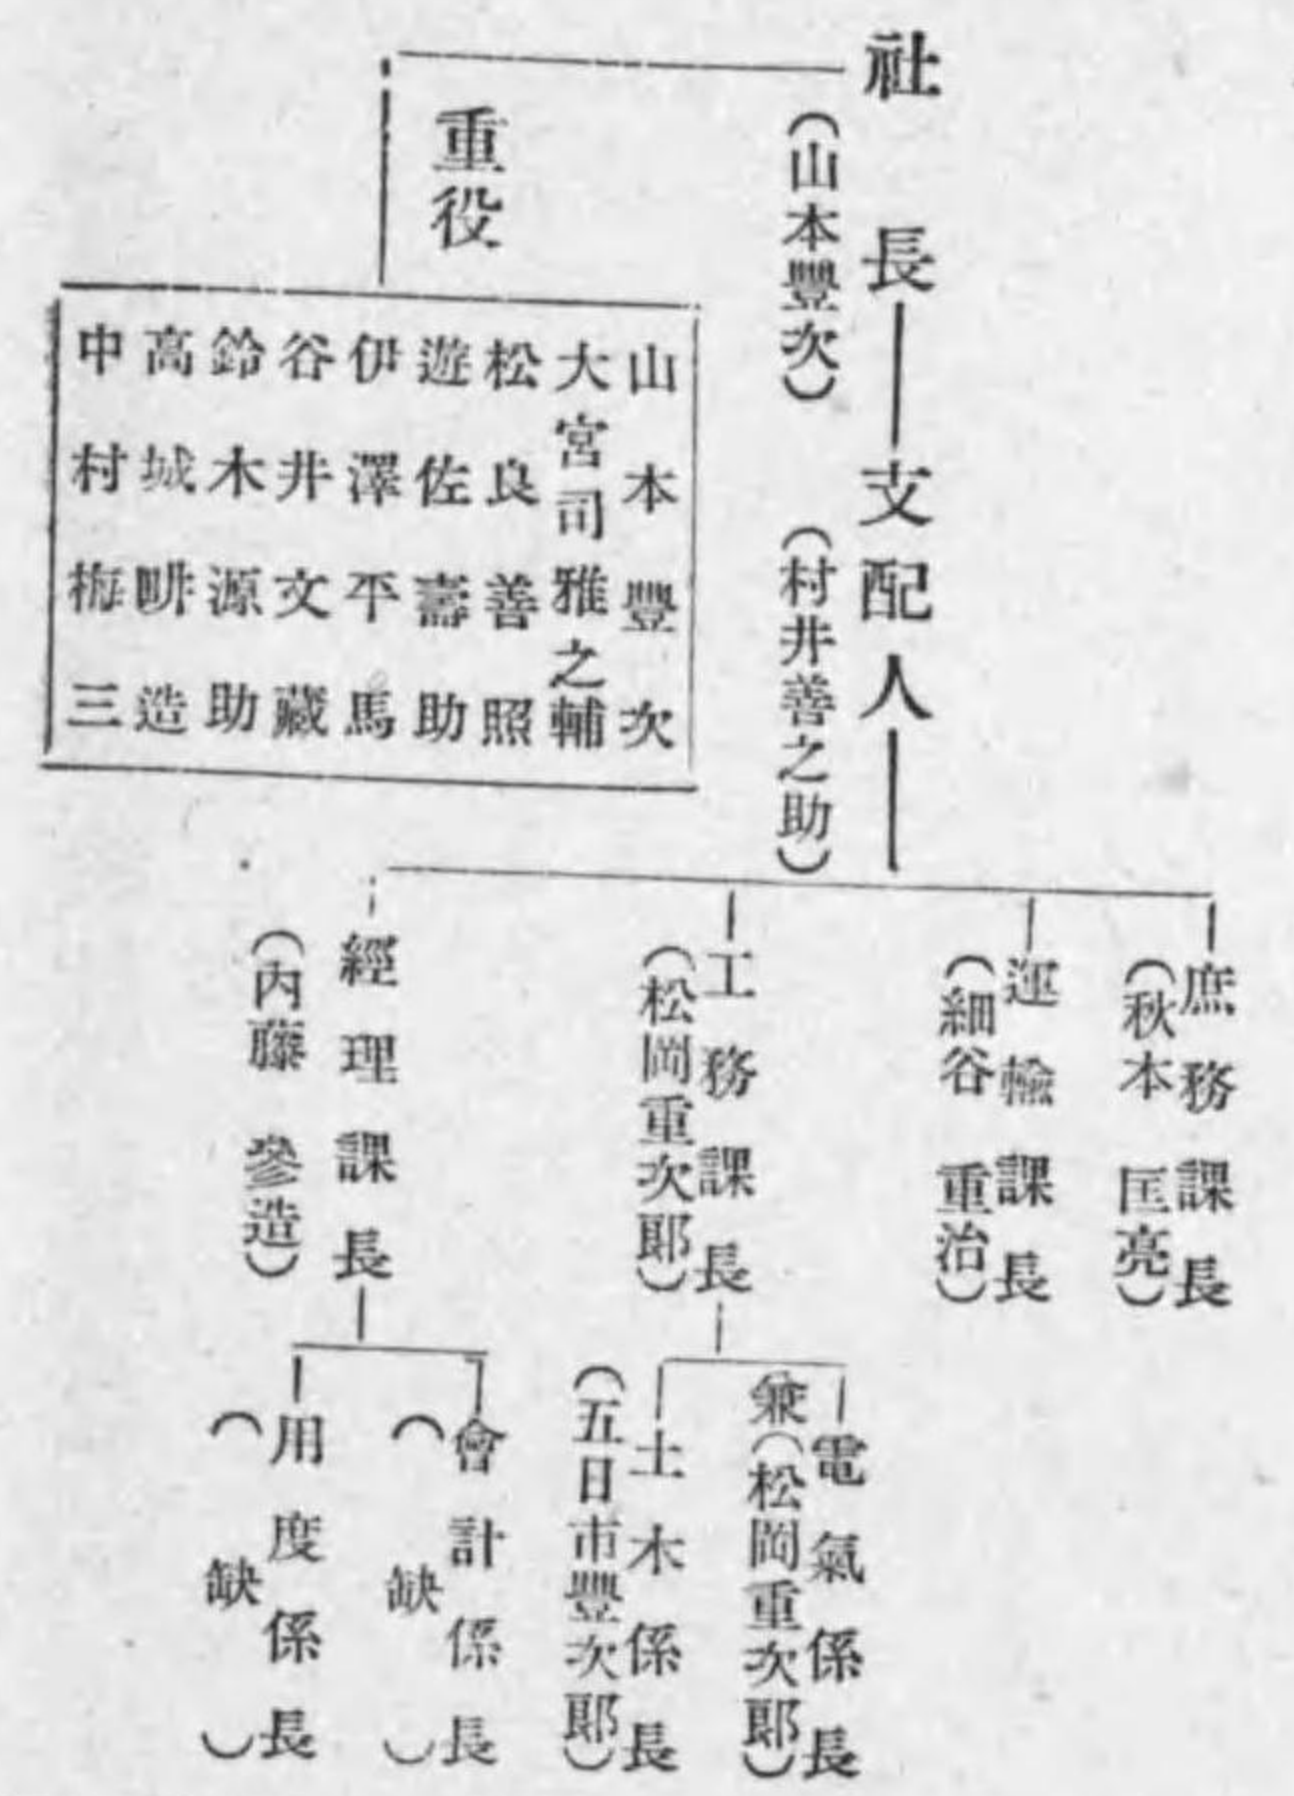 社長
(山本豐次)
支配人
(村井善之助)
重役
山本豐次
大宮司雅之輔
松良善照
遊佐壽助
伊澤平馬
谷井文藏
鈴木源助
高城畊造
中村梅三
庶務課長
(秋本匡亮)
運輸課長
(細谷重治)
工務課長
(松岡重次郎)
電氣係長
兼(松岡重次郎)
土木係長
(五日市豐次郎)
經理課長
(內藤參造)
會計係長
(缺)
用度係長
(缺)